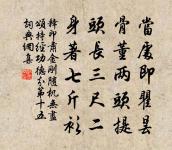 當處即瞿曇
骨董兩頭提
頭長三尺二
身著七斤衫
釋印肅金剛隨機無盡
頌持經功德分第十五
詞典網集